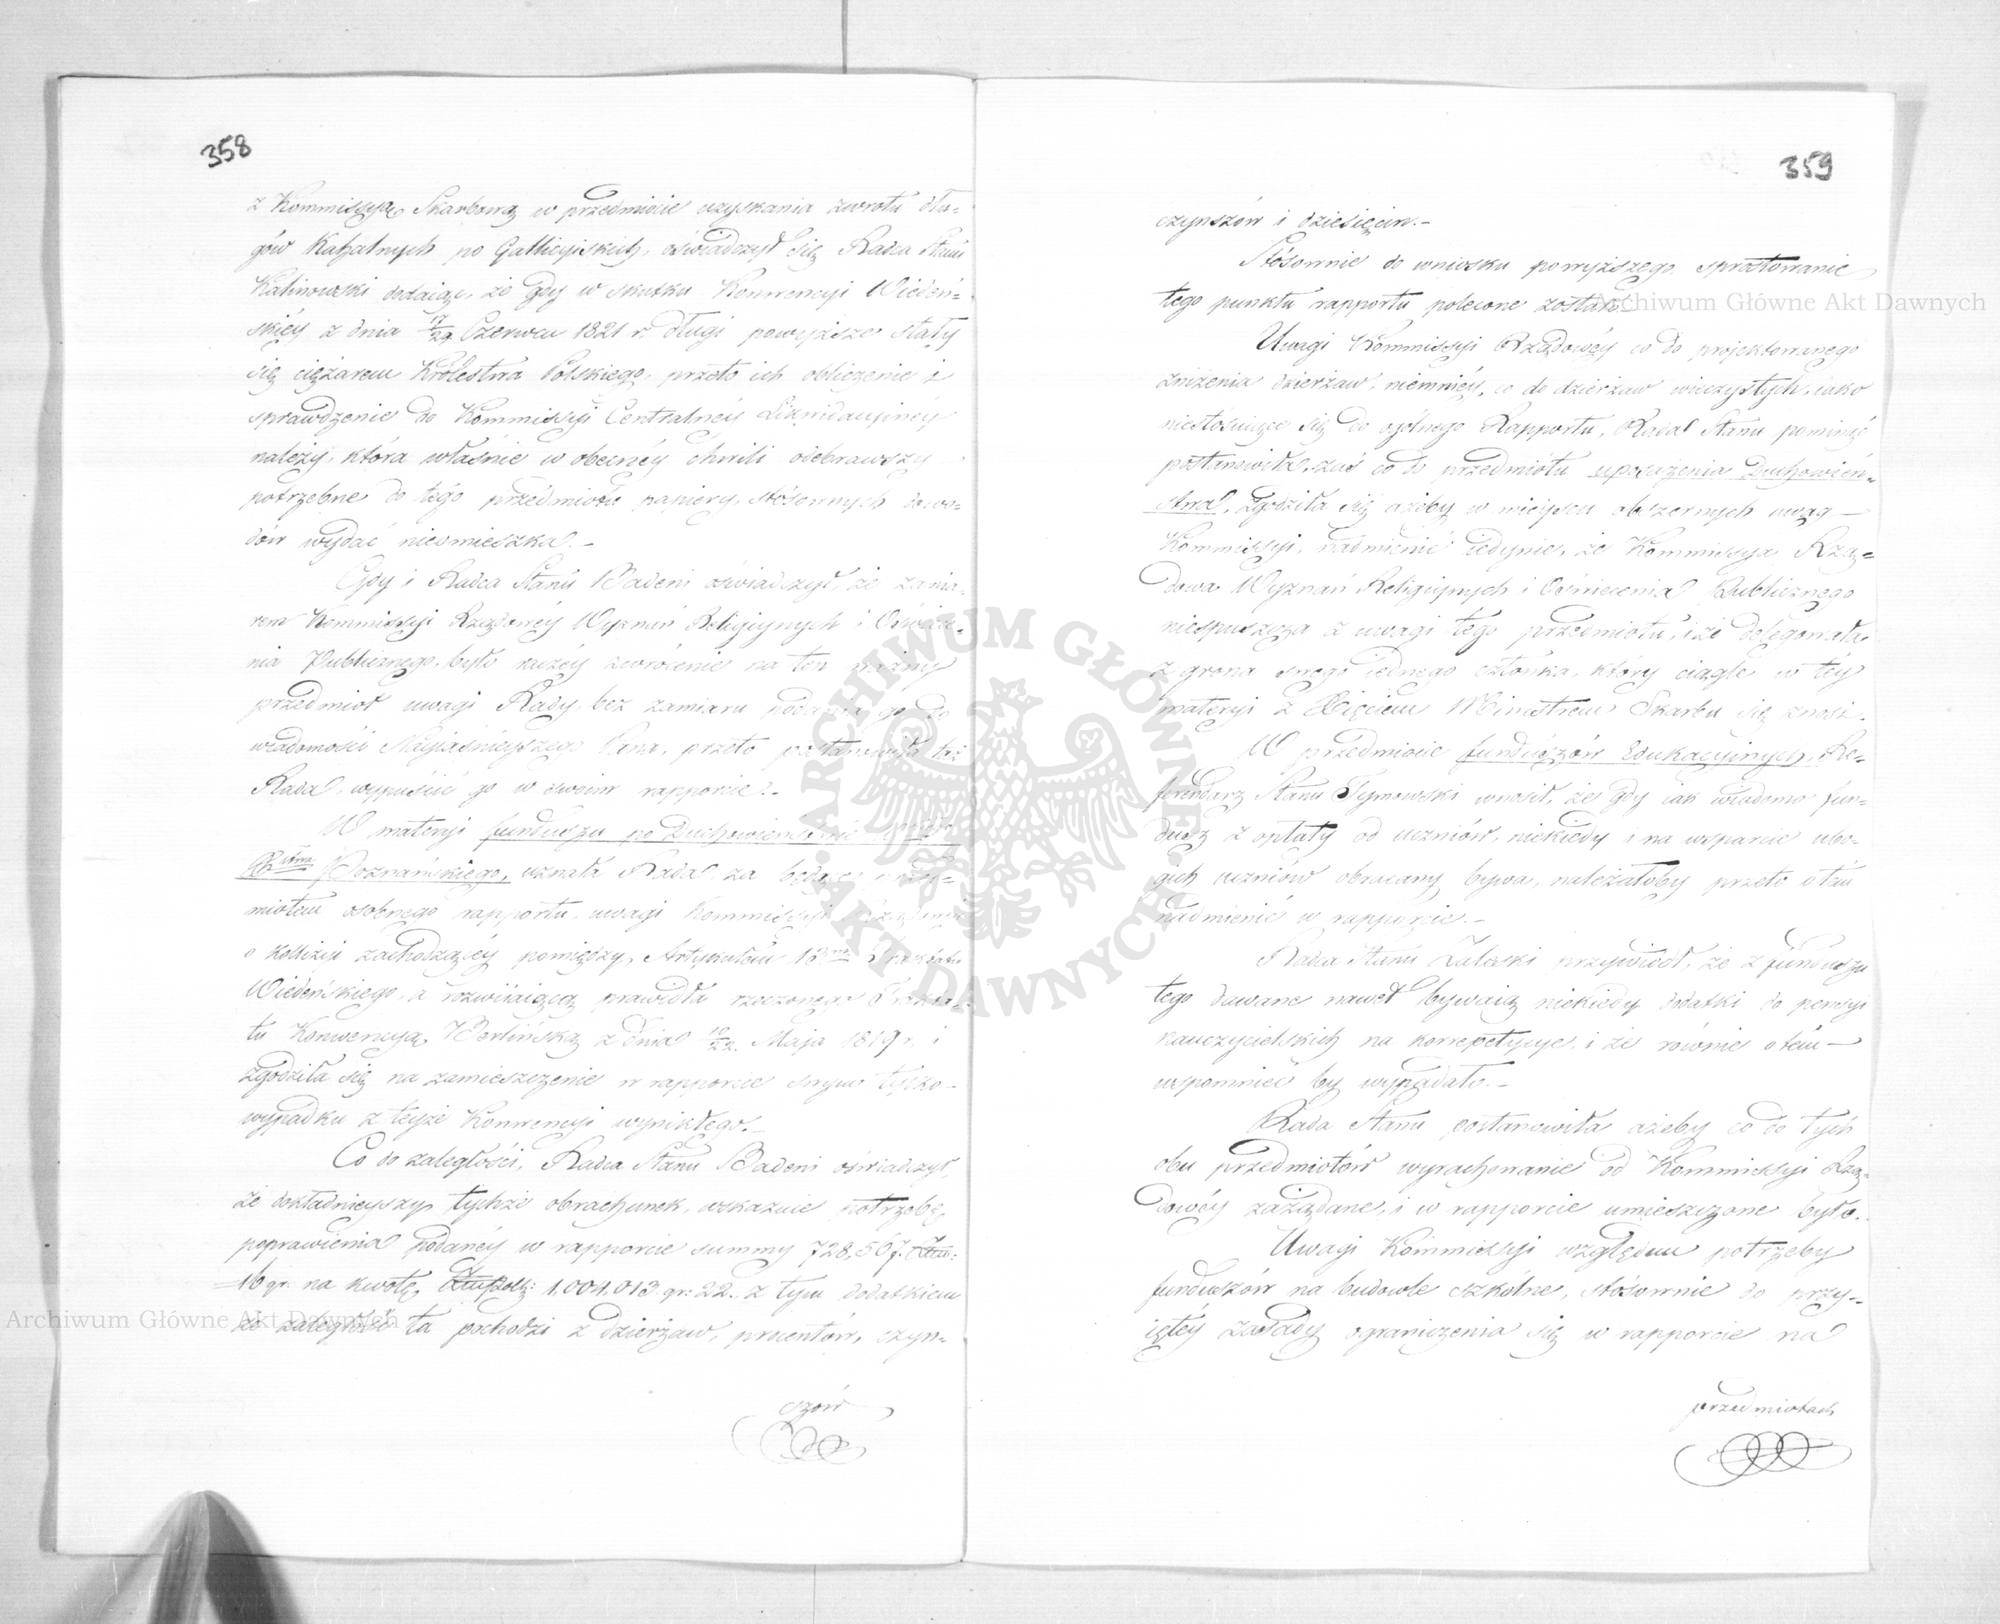 358
z Kommissyą Skarbową w przedmiocie uzyskania zwrotu dłu-
gów Kahalnych po Gallicyiskich, oświadczył się Radca Stanu
Kalinowski dodaiąc, że gdy w skutku Konwencyi Wiedeń-
skiéy z dnia 17/29 Czerwca 1821 r. długi powyższe stały
się ciężarem Królestwa Polskiego, przeto ich obliczenie i
sprawdzenie do Kommissyi Centralnéy Likwidacyinéy
należy, która właśnie w obecnéy chwili odebrawszy
potrzebne do tego przedmiotu papiery, stósownych dowo-
dów wydać nieomieszka.-
Gdy i Radca Stanu Badeni oświadczył, że zamia-
rem Kommissyi Rządowéy Wyznań Religiynych i Oświece-
nia Publicznego, było raczéy zwrócenie na ten ważny
przedmiot uwagi Rady, bez zamiaru podania go do
wiadomości Nayiaśnieyszego Pana, przeto postanowiła też
Rada, wypuścić go w swoim rapporcie.-
W materyi funduszu po Duchowieństwie
Poznańskiego, uznała Rada, za będące przed-
miotem osobnego rapportu, uwagi Kommissyi Rządowéy
o kollizyi zachodzącéy pomiędzy Artykułem 13m Traktatu
Wiedeńskiego, a rozwiiaiącą prawidła rzeczonego Trakta-
tu Konwencyą Berlińską z dnia 10/22 Maja 1819 r. i
zgodziła się na zamieszczenie w rapporcie swym tylko
wypadku z teyże Konwencyi wynikłego.-
Co do zaległości, Radca Stanu Badeni oświadczył,
że dokładnieyszy tychże obrachunek, wskazuie potrzebę
poprawienia podanéy w rapporcie summy 728,567.
16 gr. na kwotę 1,004,013 gr: 22. z tym dodatkiem
że zaległość ta pochodzi z dzierżaw, procentów, czyn-
szów
359
czynszów i dziesięcin.-
Stósownie do wniosku powyższego, sprostowanie
tego punktu rapportu polecone zostało.-
Uwagi Kommissyi Rządowéy co do projektowanego
zniżenia dzierżaw, niemniéy, co do dzierżaw wieczystych, iako
niestósuiące się do ogólnego Rapportu, Rada Stanu pominąć
postanowiła, zaś co do przedmiotu uposażenia Duchowień-
stwa, zgodziła się ażeby w mieyscu obszernych uwag
Kommissyi, nadmienić iedynie, że Kommissya Rzą-
dowa Wyznań Religiynych i Oświecenia Publicznego
niespuszcza z uwagi tego przedmiotu, i że delegowała
z grona swego iednego członka, który ciągle w téy
materyi z Xięciem Ministrem Skarbu się znosi.
W przedmiocie funduszów Edukacyinych, Re-
ferendarz Stanu Tymowski wnosił, że gdy iak wiadomo fun-
dusz z opłaty od uczniów, niekiedy i na wsparcie ubo-
gich uczniów obracany bywa, należałoby przeto o tém
nadmienić w rapporcie.-
Radca Stanu Zaleski przywiódł, że z funduszu
tego dawane nawet bywaią niekiedy dodatki do pensyi
nauczycielskich na korrepetycye, i że równie o tém
wspomnieć by wypadało.-
Rada Stanu postanowiła ażeby co do tych
obu przedmiotów wyrachowanie od Kommissyi Rzą-
dowéy zażądane, i w rapporcie umieszczone było.
Uwagi Kommissyi względem potrzeby
funduszów na budowle szkólne, stósownie do przy-
iętéy zasady ograniczenia się w rapporcie na
przedmiotach
Archiwum Główne Akt Dawnych
Archiwum Główne Akt Dawnych
ARCHIWUM GŁÓWNE AKT DAWNYCH